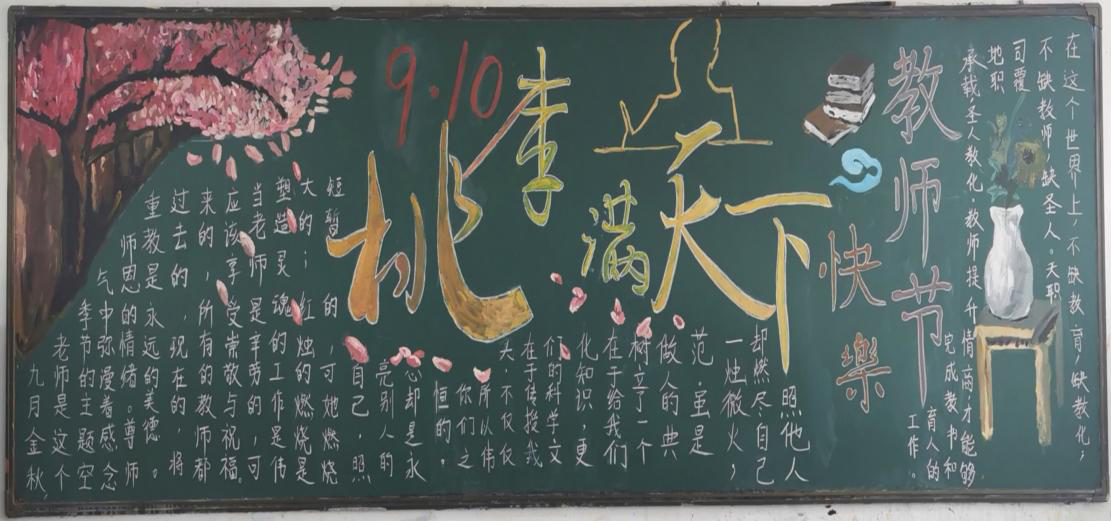 9.10
桃李满天下
教师节
快樂
在这个世界上,不缺教育,缺教化;
不缺教师,缺圣人。天职
司覆
地职
承载圣人教化,教师提升情商,才能够
完成教书和
育人的
工作。
九月金秋,
老师是这个
季节的主题空
气中弥漫着感念
师恩的情绪。尊师
重教是永远的美德
过去的,现在的,将
来的,所有的教师都
应该享受崇敬与祝福。
当老师是辛劳的,可
塑造灵魂的工作是伟
大的;红烛的燃烧是
短暂的,可她燃烧
自己,照
亮别人的
心却是永
恒的。
你们之
所以伟
大,不仅仅
在于传授我
们的科学文
化知识,更
在于给我们
树立了一个
做人的典
范,虽是
一烛微火,
却燃尽自己
照他人